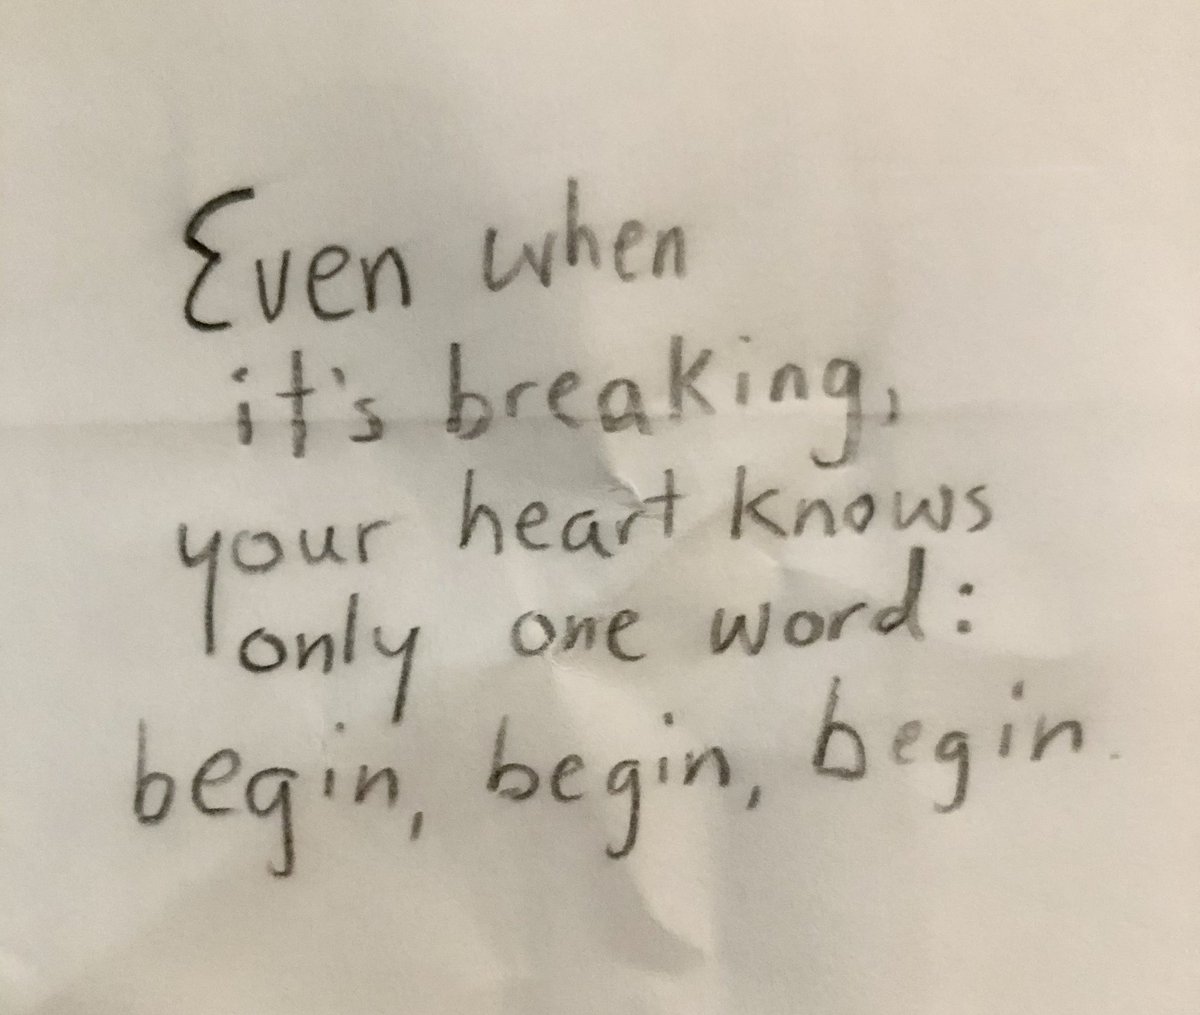 Even when
it's breaking,
your heart knows
only one word:
begin, begin, begin.